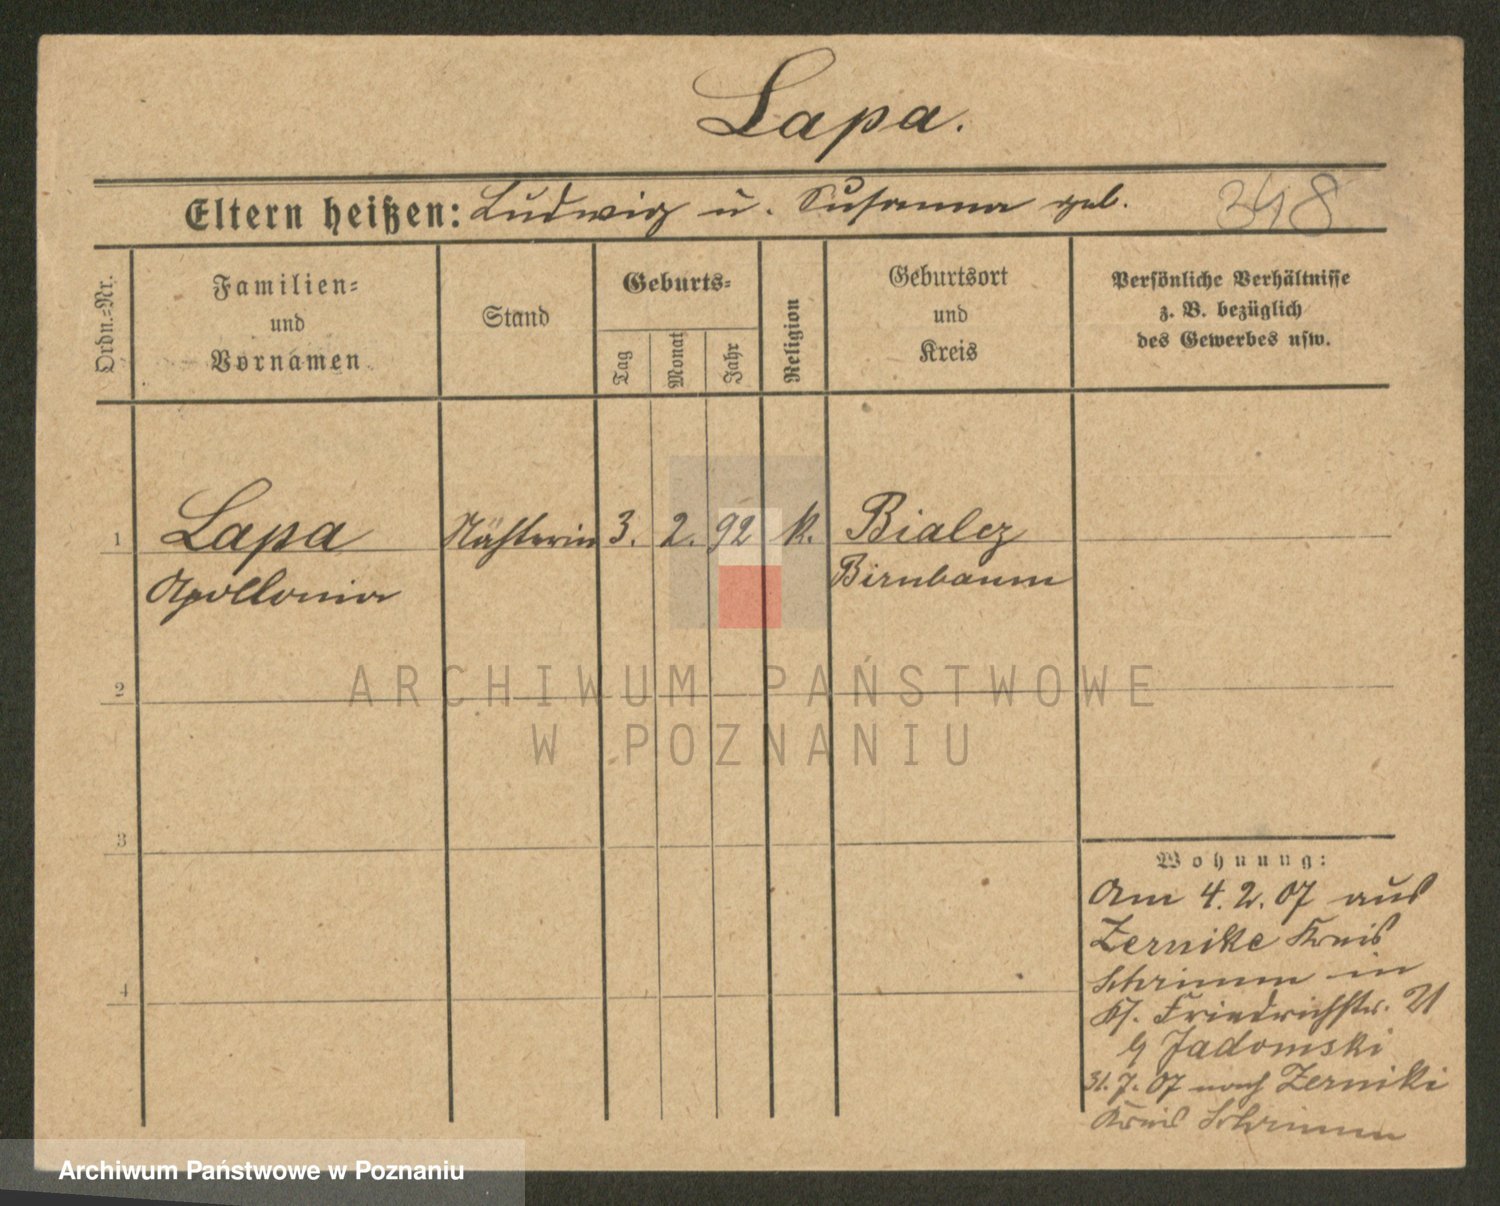 Lapa.
Eltern heißen: Ludwig u. Susanna geb. 348
Ordn.=Nr.
Familien=
und
Vornamen
Stand
Geburts=
Tag
Monat
Jahr
Religion
Geburtsort
und
Kreis
Persönliche Verhältnisse
z. B. bezüglich
des Gewerbes usw.
1 Lapa Nähterin 3. 2. 92 k. Bialcz
Apollonia Birnbaum
2
3
4
Wohnung:
Am 4. 2. 07 aus
Zernike Kreis
Schrimm in
Friedrichstr. 21
Jadomski
31. 7. 07 nach Zerniki
Kreis Schrimm
ARCHIWUM PAŃSTWOWE
W POZNANIU
Archiwum Państwowe w Poznaniu